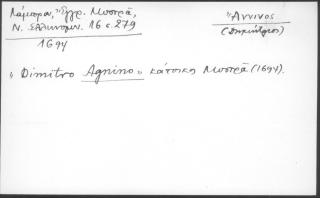 Λάμπρου, Ἔγγρ. Μυστρᾶ,
Ν. Ἑλληνομν. 16 σ. 279
1694
Ἄννινος
(Δημήτριος)
"Dimitro Agnino" κάτοικος Μυστρᾶ (1694).